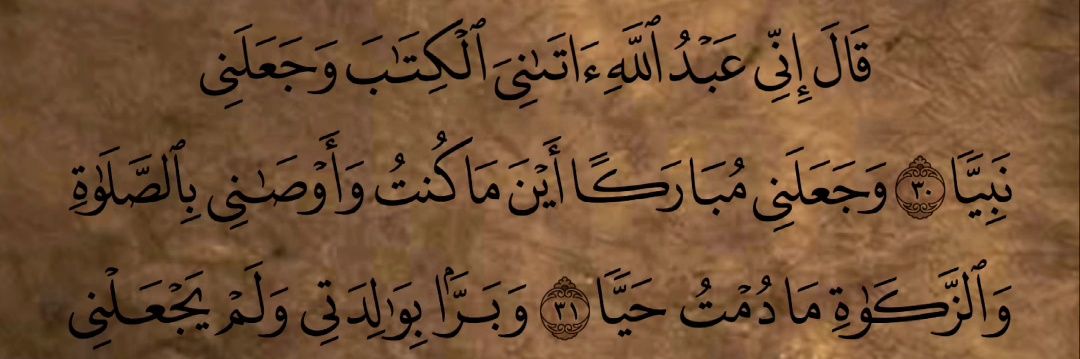 قَالَ إِنِّي عَبۡدُ ٱللَّهِ ءَاتَىٰنِيَ ٱلۡكِتَٰبَ وَجَعَلَنِي
نَبِيّٗا ٣٠ وَجَعَلَنِي مُبَارَكًا أَيۡنَ مَا كُنتُ وَأَوۡصَٰنِي بِٱلصَّلَوٰةِ
وَٱلزَّكَوٰةِ مَا دُمۡتُ حَيّٗا ٣١ وَبَرَّۢا بِوَٰلِدَتِي وَلَمۡ يَجۡعَلۡنِي